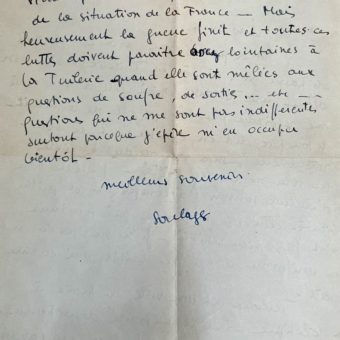 de la situation de la France — Mais
heureusement la guerre finit et toutes ces
luttes doivent paraître lointaines à
la Tuilerie quand elle sont mêlées aux
questions de soufre, de sorties ... etc —
questions qui ne me sont pas indifférentes
surtout parceque j'espère m'en occuper
bientôt –
meilleurs souvenirs
Soulages